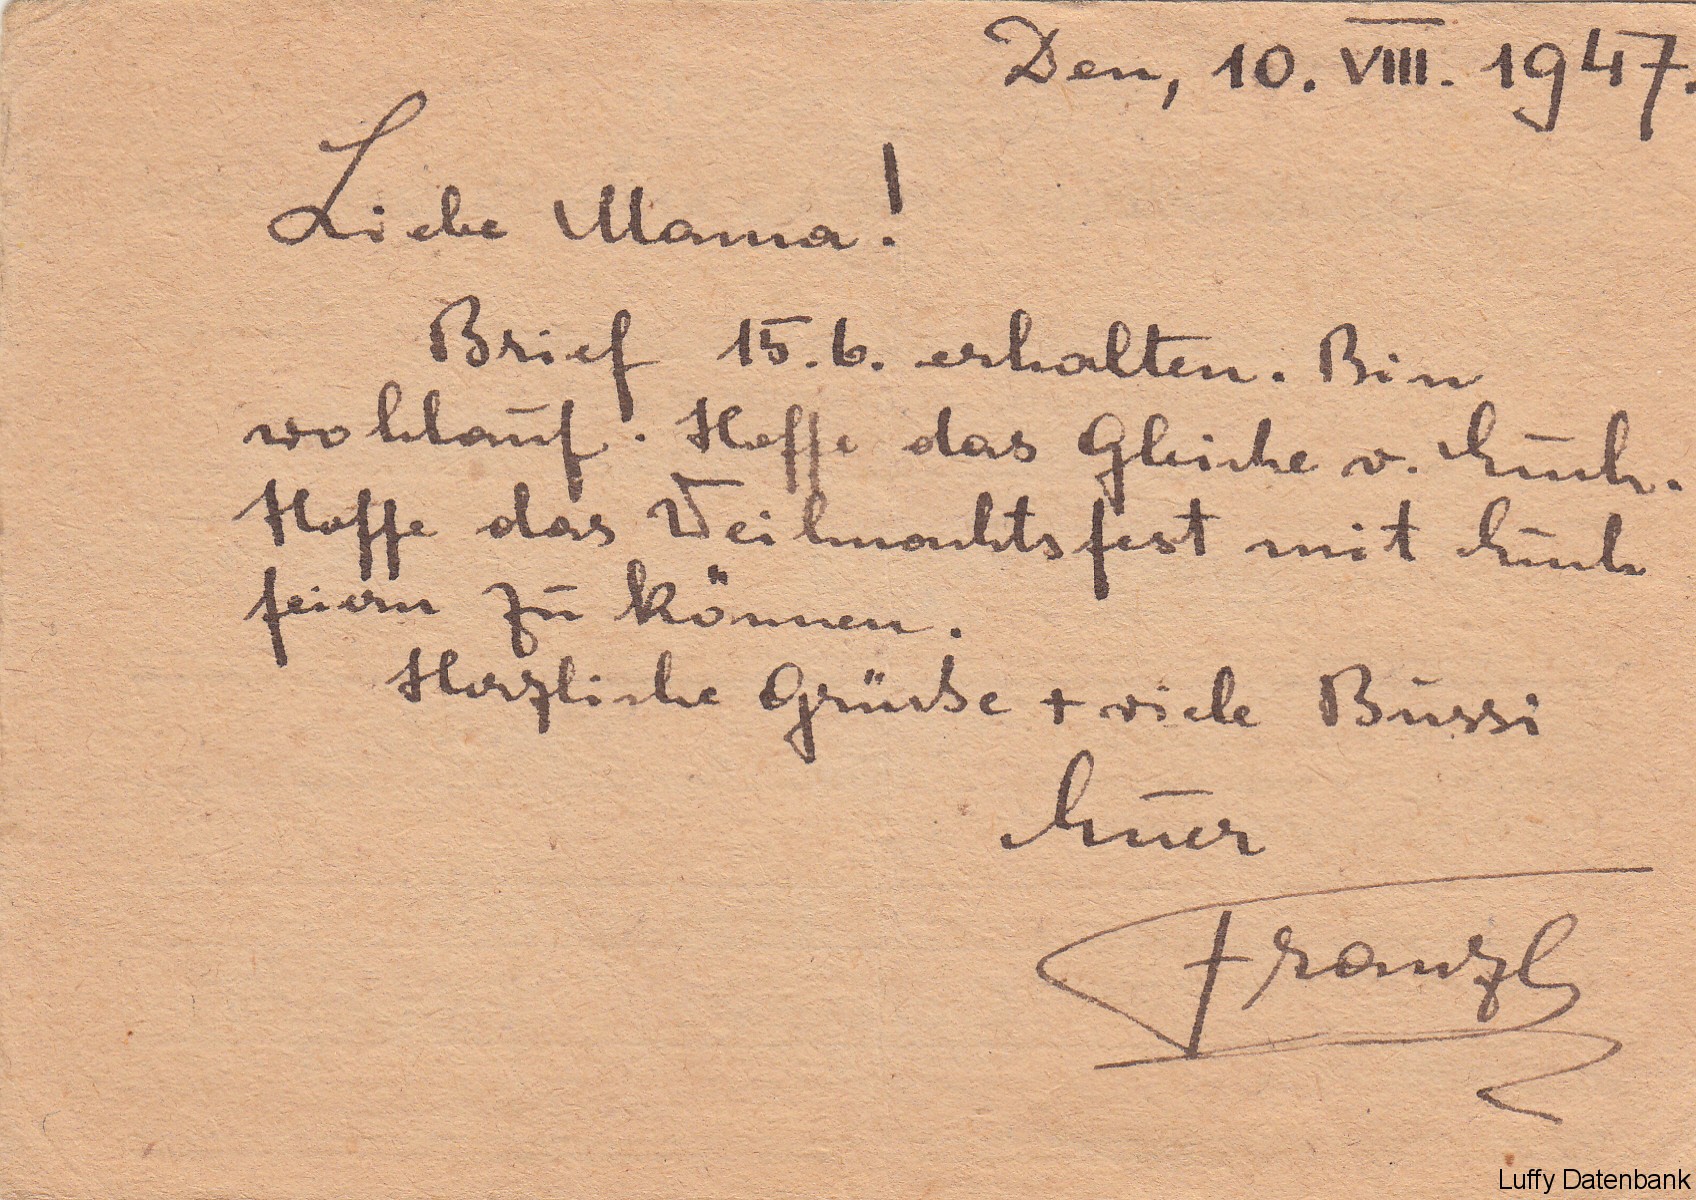 Den, 10. VIII. 1947.
Liebe Mama!
Brief 15.6. erhalten. Bin
wohlauf. Hoffe das Gleiche v. Euch.
Hoffe das Weihnachtsfest mit Euch
feiern zu können.
Herzliche Grüsse + viele Bussi
Euer
Franzl
Luffy Datenbank